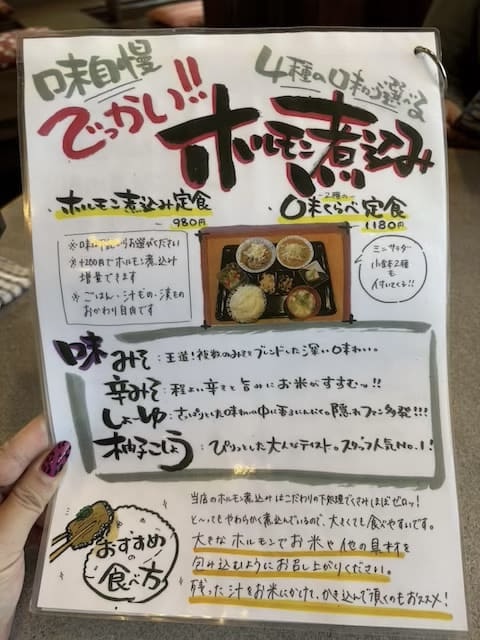 味自慢
でっかい!!
4種の味から選べる
ホルモン煮込み
・ホルモン煮込み定食
980円
～2種の～
・味くらべ定食
1180円
※味は下からお選びください
※+200円でホルモン煮込み
増量できます
※ごはん・汁もの・漬もの
おかわり自由です
ミニサラダ
小鉢2種
も
付いてくる!!
味
みそ：王道!複数のみそをブレンドした深い味わい。
辛みそ：程よい辛さと旨みにお米がすすむッ!!
しょーゆ：さっぱりとした味わいの中に香るにんにくで隠れファン多発!!!
柚子こしょう：ぴりっとした大人なテイスト。スタッフ人気No.1!
おすすめ
の
食べ方
当店のホルモン煮込みはこだわりの下処理でくさみほぼゼロッ!
と〜ってもやわらかく煮込んでいるので、大きくても食べやすいです。
大きなホルモンでお米や他の具材を
包み込むようにお召し上がりください。
残った汁をお米にかけて、かき込んで頂くのもおススメ!